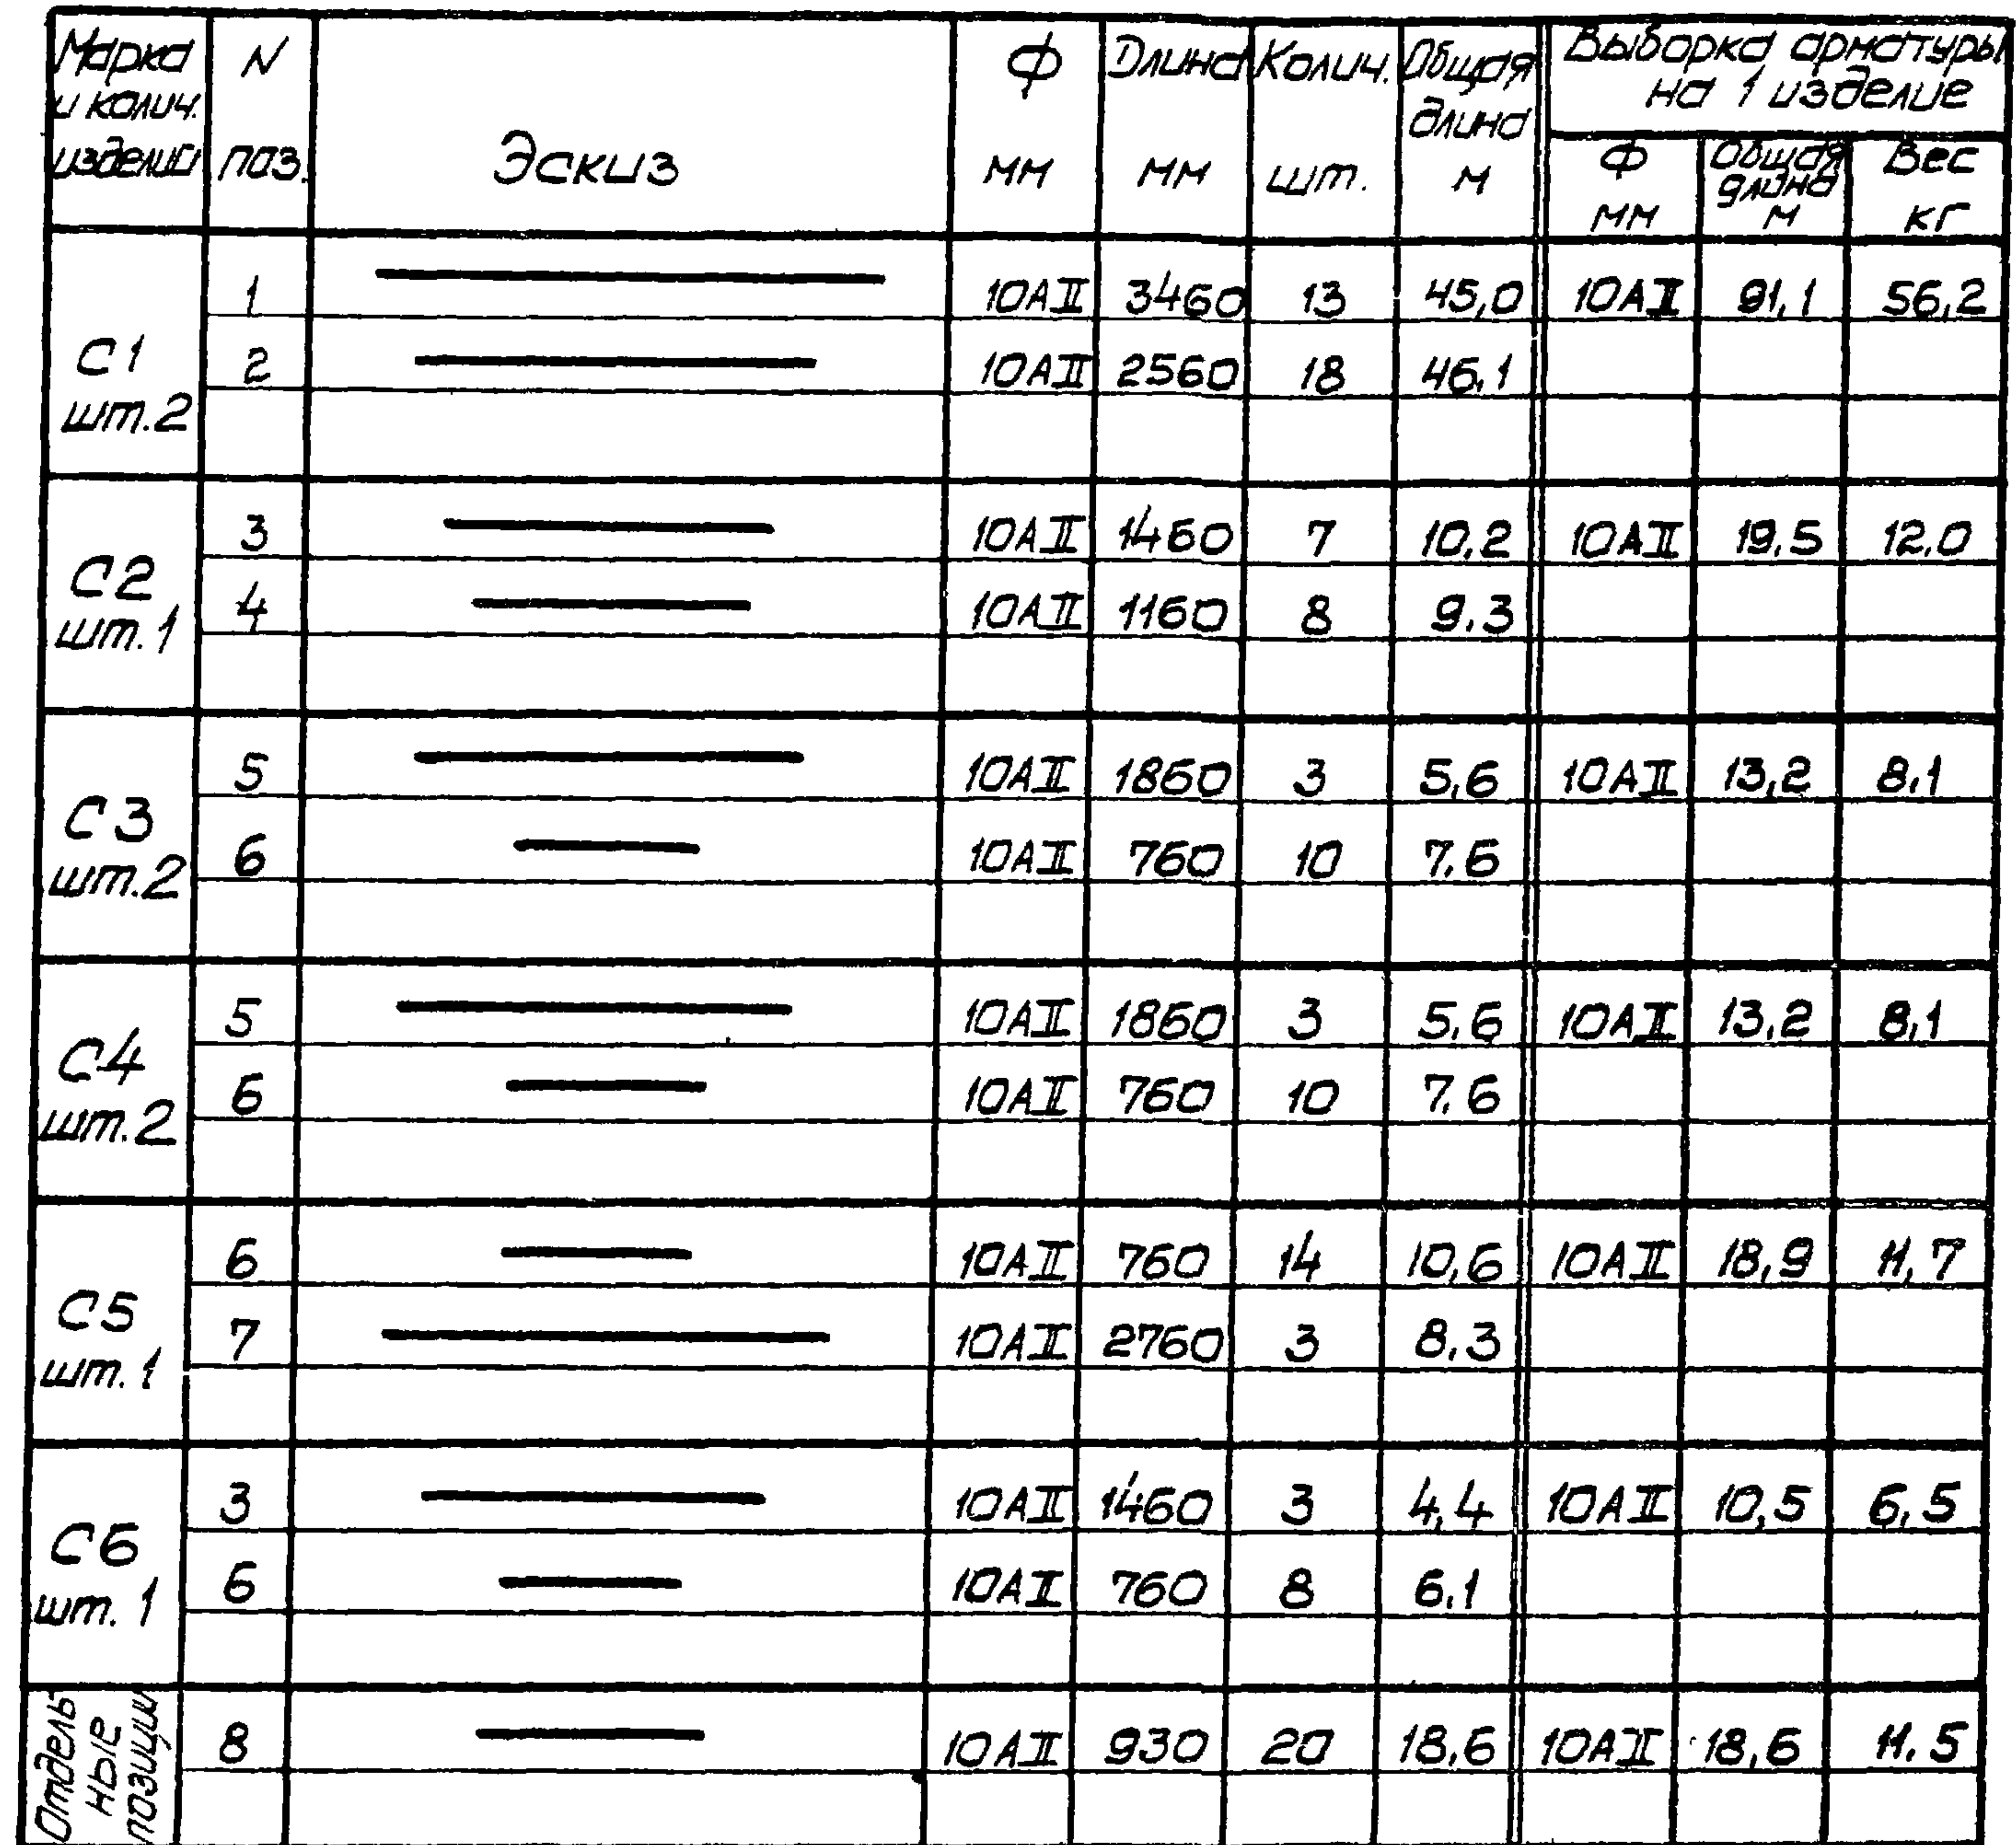 Марка и колич. изделий N поз. Эскиз Ф мм Длина мм Колич. шт. Общая длина м Выборка арматуры на 1 изделие
Ф мм Общая длина м Вес кг
С1 шт.2
1 10АII 3460 13 45,0 10АII 91,1 56,2
2 10АII 2560 18 46,1
С2 шт.1
3 10АII 1460 7 10,2 10АII 19,5 12,0
4 10АII 1160 8 9,3
С3 шт.2
5 10АII 1860 3 5,6 10АII 13,2 8,1
6 10АII 760 10 7,6
С4 шт.2
5 10АII 1860 3 5,6 10АII 13,2 8,1
6 10АII 760 10 7,6
С5 шт.1
6 10АII 760 14 10,6 10АII 18,9 11,7
7 10АII 2760 3 8,3
С6 шт. 1
3 10АII 1460 3 4,4 10АII 10,5 6,5
6 10АII 760 8 6,1
Отдель
ные
позиции
8 10АII 930 20 18,6 10АII 18,6 11.5